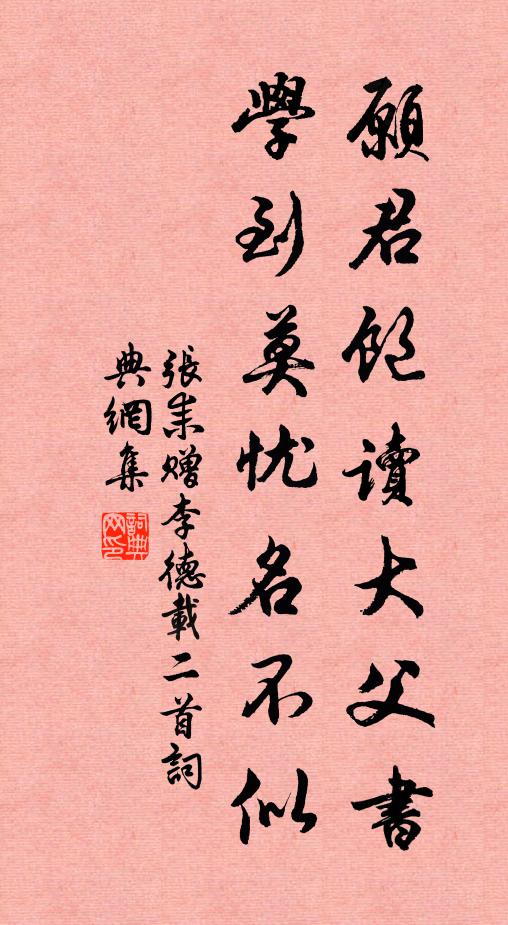 願君飽讀大父書
學到莫忧名不似
張耒贈李德載二首詞
典網集
詞典網印